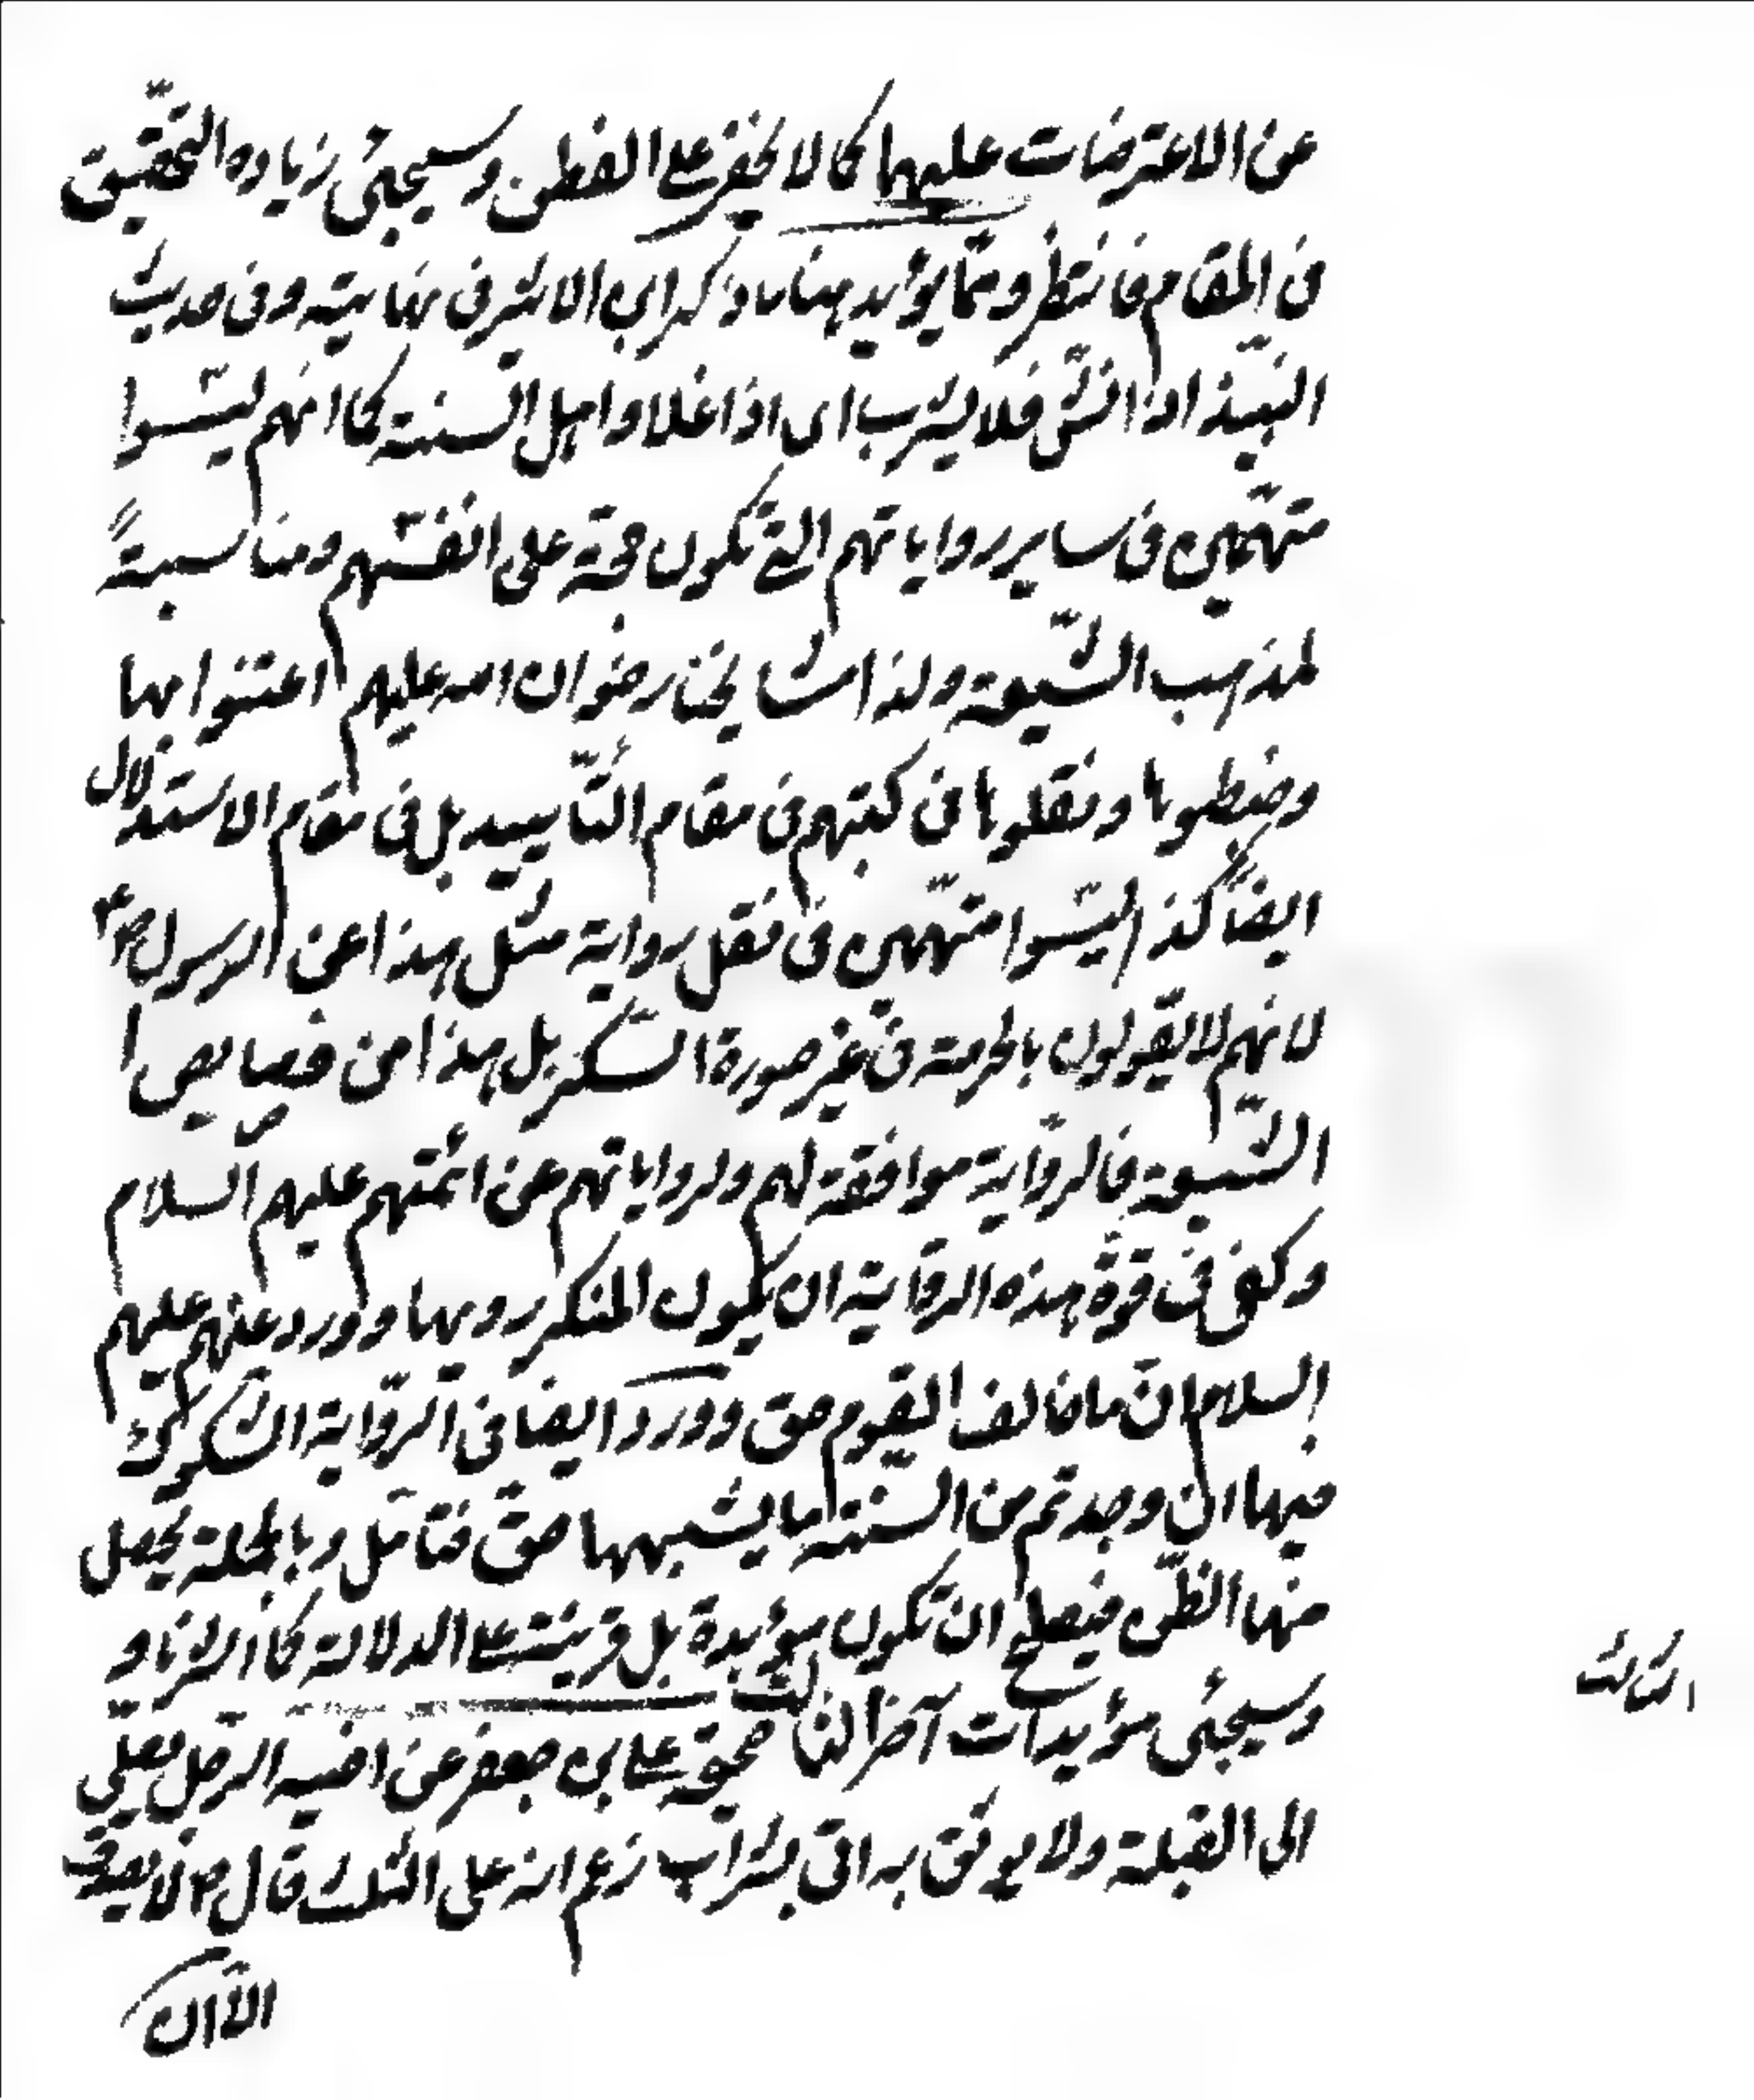 عن الاعترضات عليهما كما لا يخفى على الفطن وسيجيئ زياده التحقيق
فى المقام فانتظر ومما يؤيد هنا ما ذكر ابن الاثير فى نهايته وفى حديث
النبيذ اذا نش فلا يشرب اى اذا غلا واهل السنة كما انهم ليسوا
متهمين فى ساير رواياتهم التى تكون حجة على انفسهم ومناسبة
لمذهب الشيعة ولذا مشايخنا رضوان الله عليهم اعتنوا بها
وضبطوها ونقلوها فى كتبهم فى مقام التأييد بل فى مقام الاستدلال
ايضاً كذا ليسوا متهمين فى نقل رواية مثل هذا عن الرسول ص
لانهم لا يقولون بالحرمة فى غير صورة السكر بل هذا من خصايص
الشيعة فالرواية موافقة لهم ولرواياتهم عن ائمتهم عليهم السلام
وكفى فى قوة هذه الرواية ان يكون المنكر روىها وورد عنهم عليهم
السلام ان ما خالف القوم حق وورد ايضا فى الرواية
فيها ان وجدتم من السنة ما يشبهها حق فتامل وبالجملة يحصل
منها الظن فيصلح ان تكون مؤيدة بل قرينة على الدلالة كما اشرنا و
وسيجيئ مؤيدات آخر الثالث صحيحة على بن جعفر عن اخيه الرجل يصلى
الى القبلة ولا يوثق به اتى بشراب زعم انه على الثلث قال لا يصدق
الا ان
الثالث